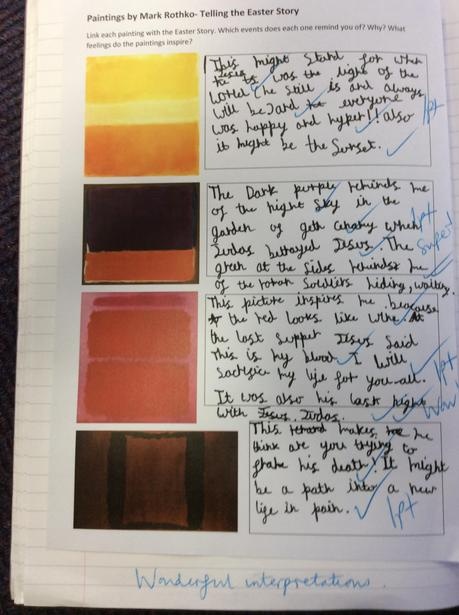 Paintings by Mark Rothko- Telling the Easter Story
Link each painting with the Easter Story. Which events does each one remind you of? Why? What
feelings do the paintings inspire?
This might stand for when
Jesus
was the light of the
(he still is and always
will be) and everyone
was happy and hyper!! also
it might be the Sunset.
1pt
The Dark purple reminds me
of the night sky in the
garden of geth when
Judas betrayed Jesus. The
at the sides reminds me
of the roman Soldiers hiding, waiting.
1pt
Super
This picture inspires me because
the red looks like wine.
the last supper Jesus said
This is my blood I will
my life for you all.
It was also his last night
with Jesus. Judas.
1pt
Wow!
This makes me
think are you trying to
his death! It might
be a path into a new
life in pain.
1pt
Wonderful interpretations.